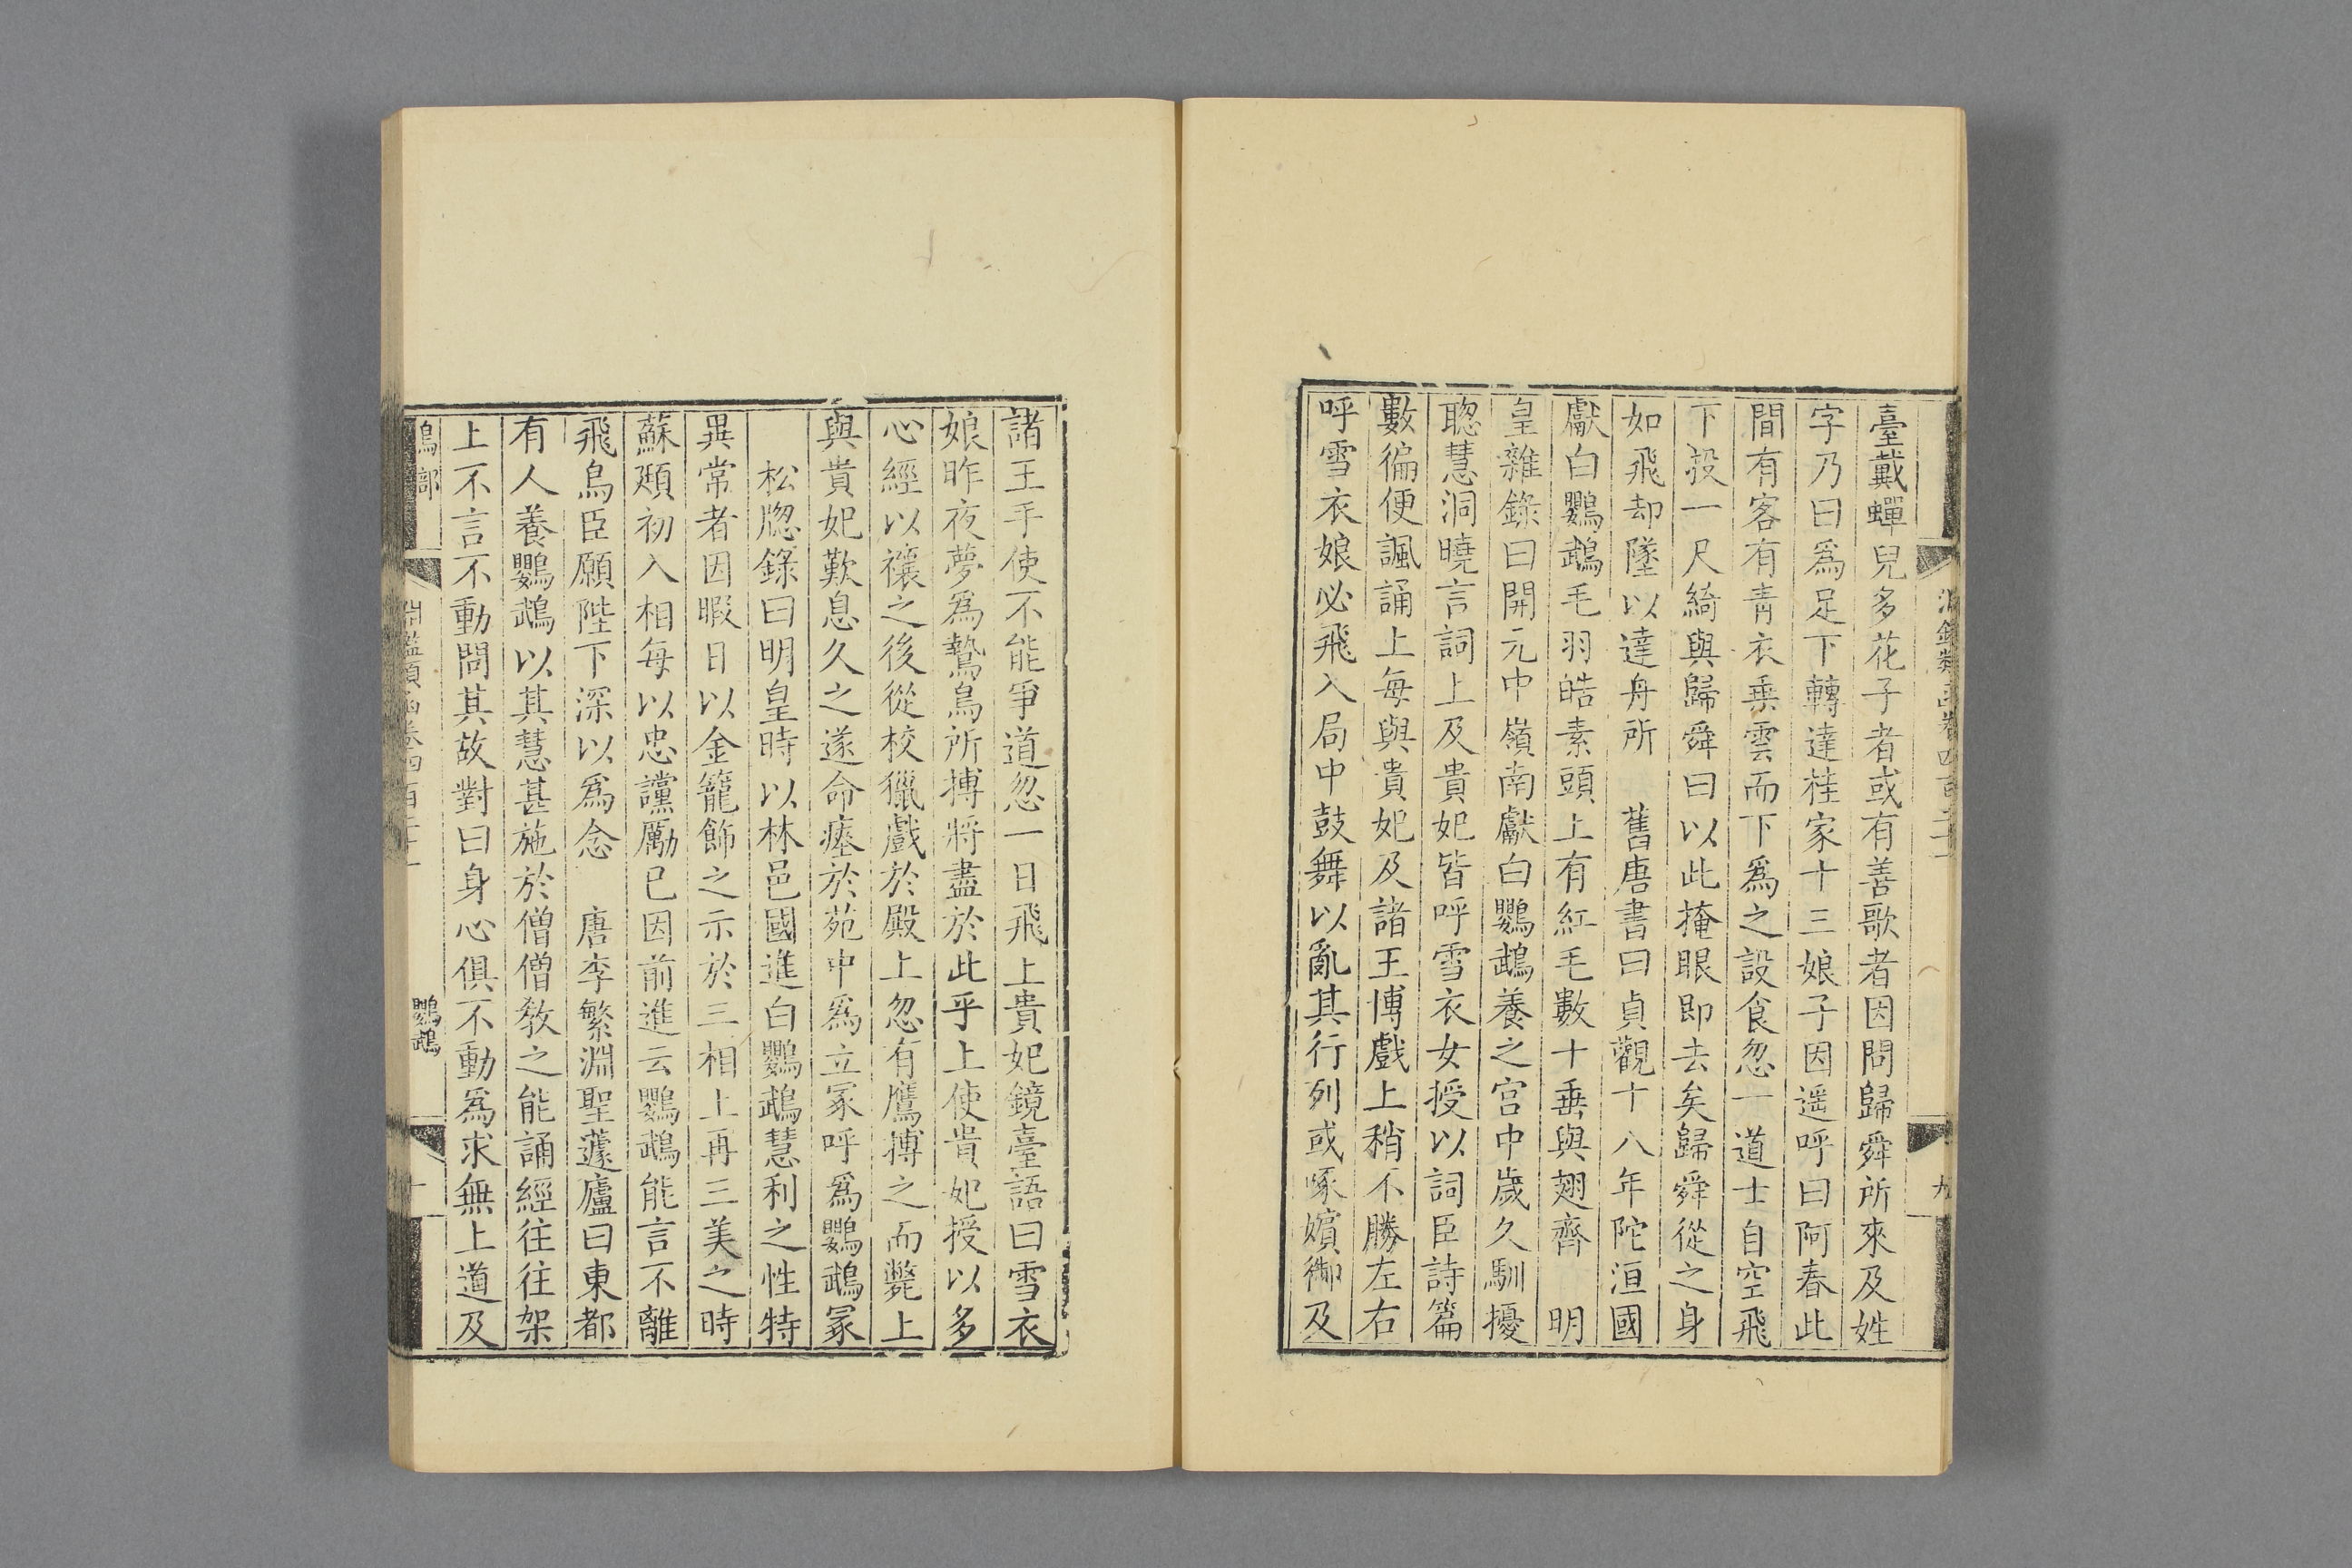 淵鑑類函卷四百二十一
九
臺戴蟬兒多花子者或有善歌者因問歸舜所來及姓
字乃曰爲足下轉達桂家十三娘子因遥呼曰阿春此
間有客有青衣乘雲而下爲之設食忽一道士自空飛
下投一尺綺與歸舜曰以此掩眼即去矣歸舜從之身
如飛却墜以達舟所 舊唐書曰貞觀十八年陀洹國
獻白鸚鵡毛羽皓素頭上有紅毛數十垂與翅齊 明
皇雜錄曰開元中嶺南獻白鸚鵡養之宫中歲久馴擾
聰慧洞曉言詞上及貴妃皆呼雪衣女授以詞臣詩篇
數徧便諷誦上每與貴妃及諸王博戲上稍不勝左右
呼雪衣娘必飛入局中鼓舞以亂其行列或啄嬪御及
諸王手使不能爭道忽一日飛上貴妃鏡臺語曰雪衣
娘昨夜夢爲鷙鳥所搏將盡於此乎上使貴妃授以多
心經以禳之後從校獵戲於殿上忽有鷹搏之而斃上
與貴妃歎息久之遂命瘞於苑中爲立冢呼爲鸚鵡冢
松牕錄曰明皇時以林邑國進白鸚鵡慧利之性特
異常者因暇日以金籠飾之示於三相上再三美之時
蘇頲初入相每以忠讜勵已因前進云鸚鵡能言不離
飛鳥臣願陛下深以爲念 唐李繁淵聖蘧廬曰東都
有人養鸚鵡以其慧甚施於僧僧敎之能誦經往往架
上不言不動問其故對曰身心俱不動爲求無上道及
鳥部 淵鑑類函卷四百二十一 鸚鵡 十